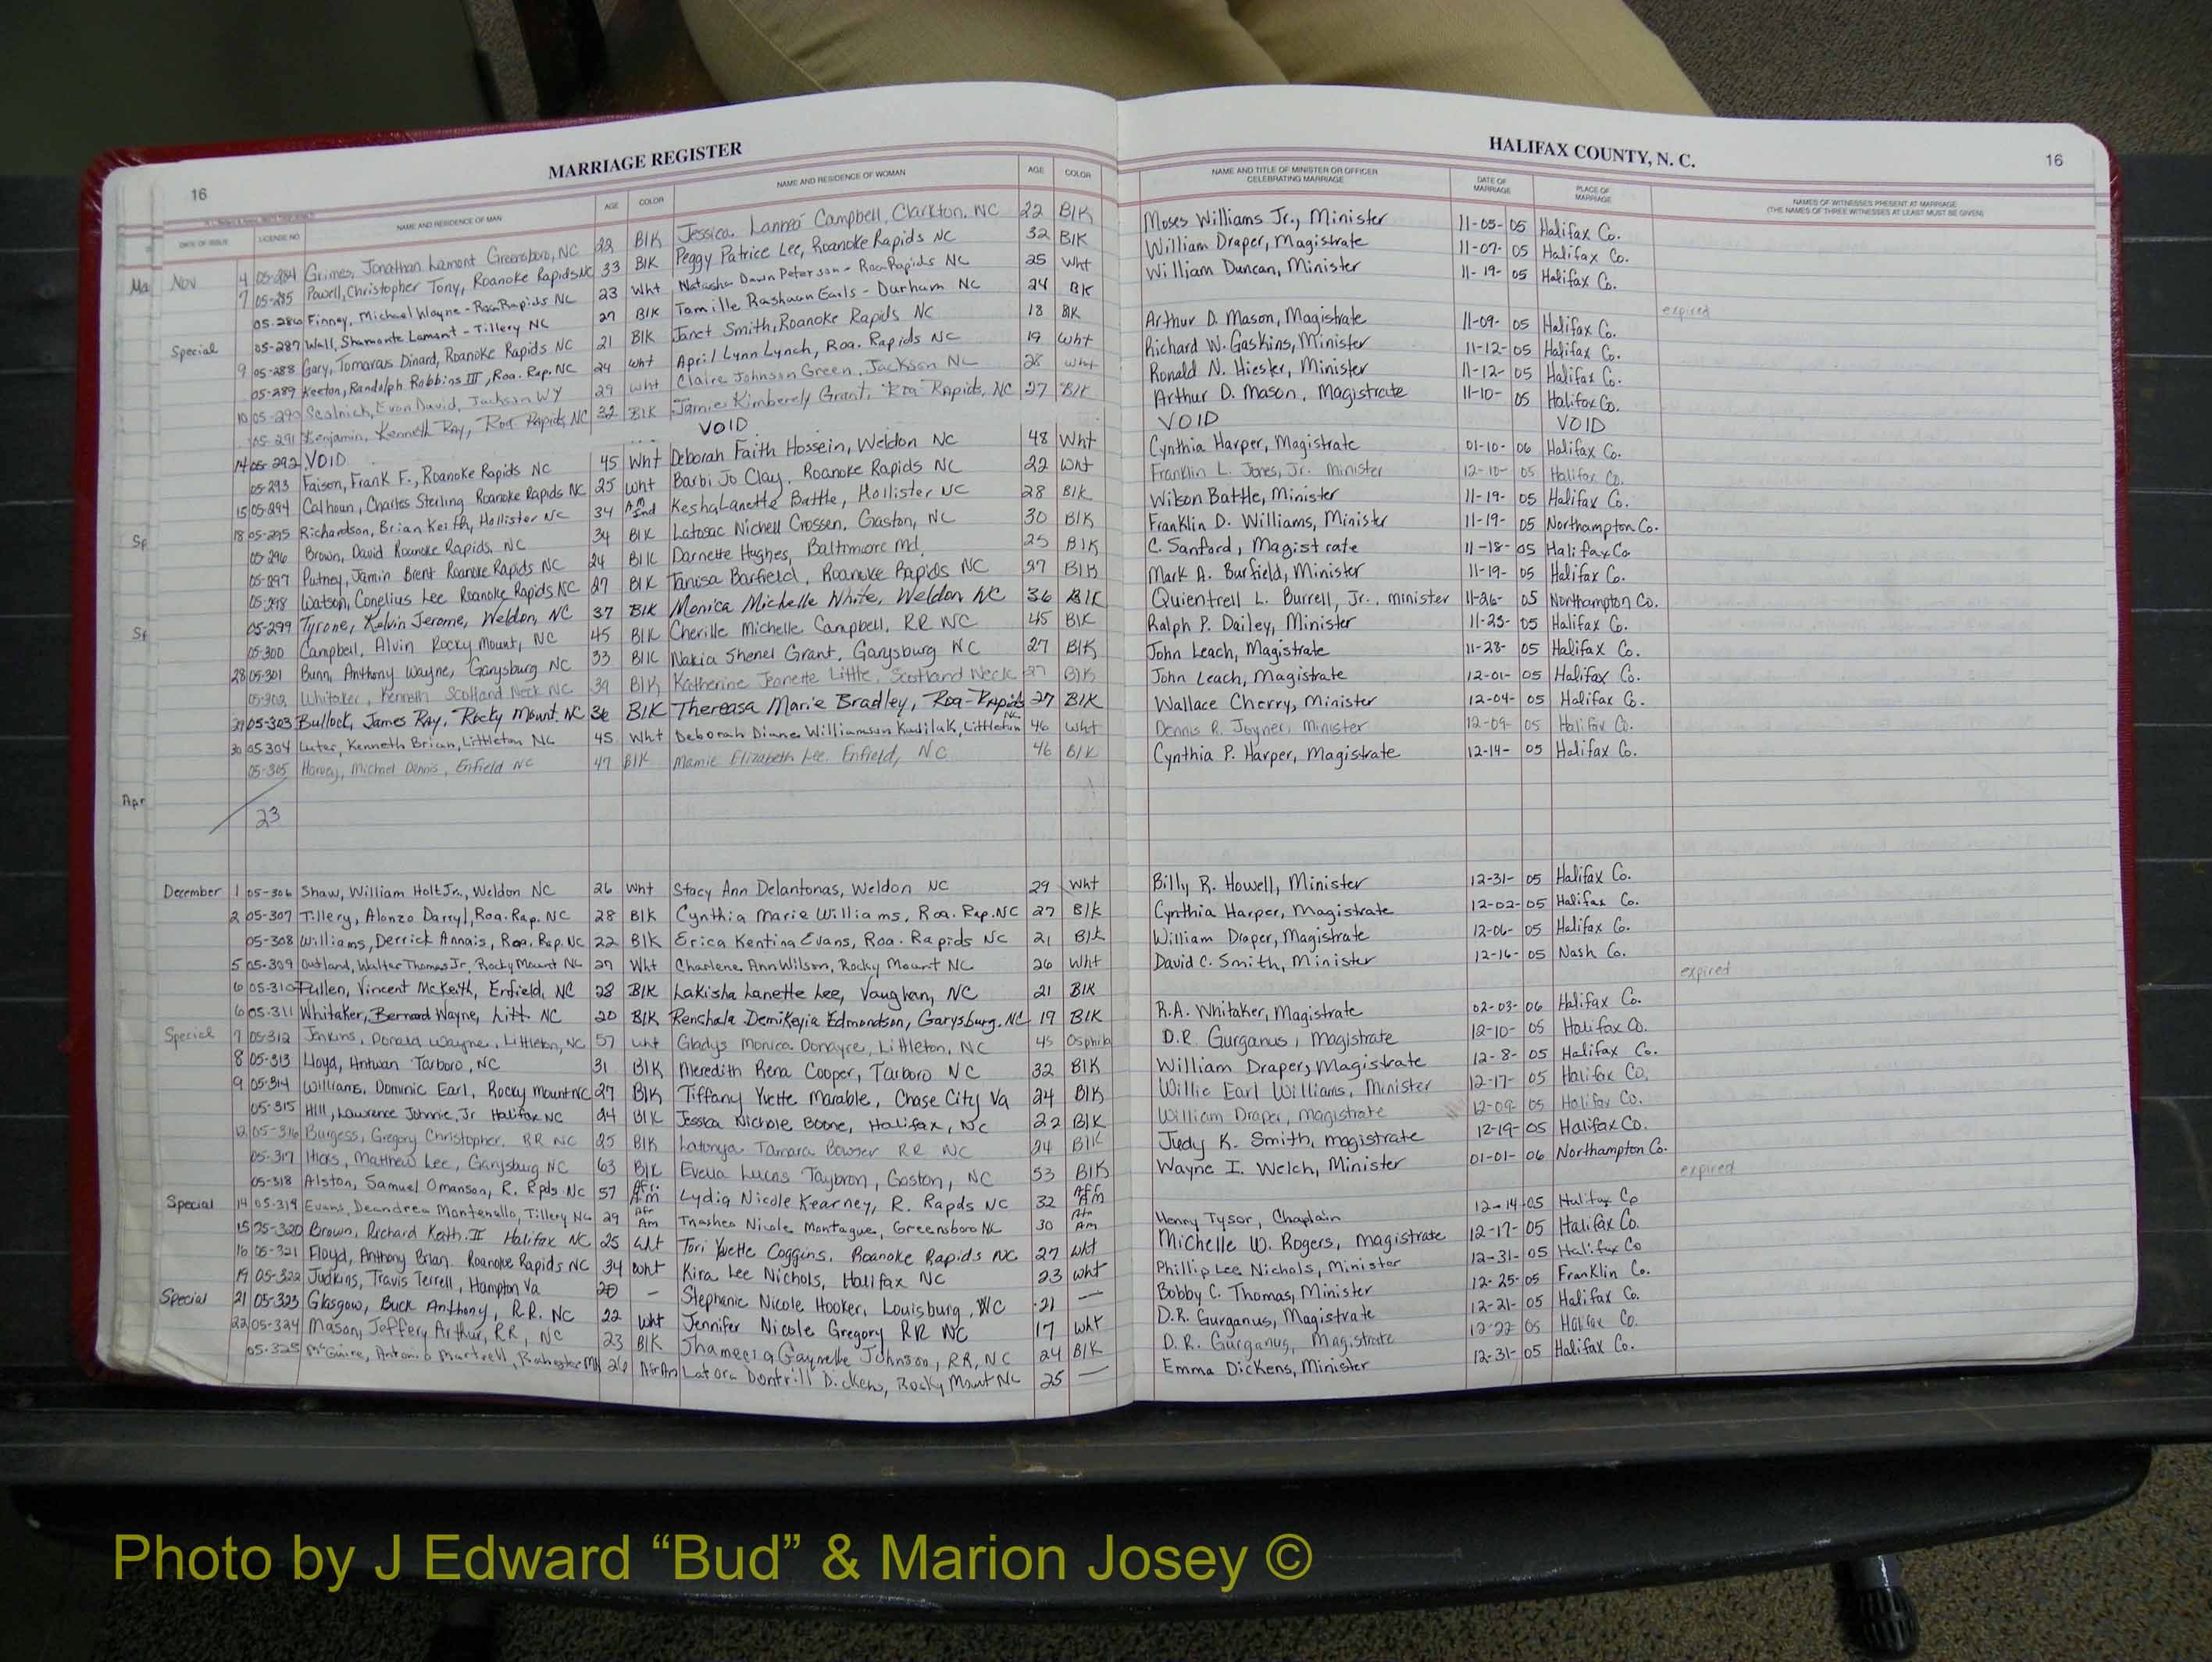 MARRIAGE REGISTER
HALIFAX COUNTY, N. C.
16
16
DATE OF ISSUE LICENSE NO NAME AND RESIDENCE OF MAN AGE COLOR NAME AND RESIDENCE OF WOMAN AGE COLOR NAME AND TITLE OF MINISTER OR OFFICER CELEBRATING MARRIAGE DATE OF MARRIAGE PLACE OF MARRIAGE NAMES OF WITNESSES PRESENT AT MARRIAGE (THE NAMES OF THREE WITNESSES AT LEAST MUST BE GIVEN)
Nov 4 05-284 Grimes, Jonathan Lamont Greensboro, NC 22 Blk Jessica Lannea Campbell, Clarkton, NC 22 Blk Moses Williams Jr., Minister 11-05-05 Halifax Co.
7 05-285 Powell, Christopher Tony, Roanoke Rapids NC 33 Blk Peggy Patrice Lee, Roanoke Rapids NC 32 Blk William Draper, Magistrate 11-07-05 Halifax Co.
05-286 Finney, Michael Wayne - Roa Rapids NC 23 Wht Natasha Dawn Peterson - Roa Rapids NC 25 Wht William Duncan, Minister 11-19-05 Halifax Co.
Special 05-287 Wall, Shamonte Lamont - Tillery NC 27 Blk Tamille Rashawn Earls - Durham NC 24 Blk expired
9 05-288 Gary, Tomaras Dinard, Roanoke Rapids NC 21 Blk Janet Smith, Roanoke Rapids NC 18 Blk Arthur D. Mason, Magistrate 11-09-05 Halifax Co.
05-289 Keeton, Randolph Robbins III, Roa. Rap. NC 24 Wht April Lynn Lynch, Roa. Rapids NC 19 Wht Richard W. Gaskins, Minister 11-12-05 Halifax Co.
10 05-290 Scolnick, Evan David, Jackson WY 29 Wht Claire Johnson Green, Jackson NC 28 Wht Ronald N. Hiester, Minister 11-12-05 Halifax Co.
05-291 Benjamin, Kenneth Ray, Roa Rapids, NC 32 Blk Jamie Kimberely Grant, Roa Rapids, NC 27 Blk Arthur D. Mason, Magistrate 11-10-05 Halifax Co.
14 05-292 VOID VOID VOID VOID
05-293 Faison, Frank F., Roanoke Rapids NC 45 Wht Deborah Faith Hossein, Weldon NC 48 Wht Cynthia Harper, Magistrate 01-10-06 Halifax Co.
15 05-294 Calhoun, Charles Sterling Roanoke Rapids NC 25 Wht Barbi Jo Clay, Roanoke Rapids NC 22 Wht Franklin L. Jones, Jr. Minister 12-10-05 Halifax Co.
18 05-295 Richardson, Brian Keith, Hollister NC 34 Am Ind Kesha Lanette Battle, Hollister NC 28 Blk Wilson Battle, Minister 11-19-05 Halifax Co.
05-296 Brown, David Roanoke Rapids, NC 34 Blk Latosac Nichell Crossen, Gaston, NC 30 Blk Franklin D. Williams, Minister 11-19-05 Northampton Co.
05-297 Putney, Jamin Brent Roanoke Rapids NC 24 Blk Darnette Hughes, Baltimore Md. 25 Blk C. Sanford, Magistrate 11-18-05 Halifax Co
05-298 Watson, Conelius Lee Roanoke Rapids NC 27 Blk Tanisa Barfield, Roanoke Rapids NC 27 Blk Mark A. Burfield, Minister 11-19-05 Halifax Co.
05-299 Tyrone, Kelvin Jerome, Weldon, NC 37 Blk Monica Michelle White, Weldon NC 36 Blk Quientrell L. Burrell, Jr., minister 11-26-05 Northampton Co.
05-300 Campbell, Alvin Rocky Mount, NC 45 Blk Cherille Michelle Campbell, RR NC 45 Blk Ralph P. Dailey, Minister 11-25-05 Halifax Co.
28 05-301 Bunn, Anthony Wayne, Garysburg NC 33 Blk Nakia Shenel Grant, Garysburg NC 27 Blk John Leach, Magistrate 11-28-05 Halifax Co.
05-302 Whitaker, Kenneth Scotland Neck NC 39 Blk Katherine Jeanette Little, Scotland Neck 27 Blk John Leach, Magistrate 12-01-05 Halifax Co.
29 05-303 Bullock, James Ray, Rocky Mount, NC 36 Blk Thereasa Marie Bradley, Roa-Rapids NC 27 Blk Wallace Cherry, Minister 12-04-05 Halifax Co.
30 05-304 Luter, Kenneth Brian, Littleton NC 45 Wht Deborah Diane Williamson Kudilak, Littleton 46 Wht Dennis R. Joyner, Minister 12-09-05 Halifax Co.
05-305 Harvey, Michael Dennis, Enfield NC 47 Blk Mamie Elizabeth Lee, Enfield, NC 46 Blk Cynthia P. Harper, Magistrate 12-14-05 Halifax Co.
Apr
23
December 1 05-306 Shaw, William Holt Jr., Weldon NC 26 Wht Stacy Ann Delantonas, Weldon NC 29 Wht Billy R. Howell, Minister 12-31-05 Halifax Co.
2 05-307 Tillery, Alonzo Darryl, Roa. Rap. NC 28 Blk Cynthia Marie Williams, Roa. Rap. NC 27 Blk Cynthia Harper, Magistrate 12-02-05 Halifax Co.
05-308 Williams, Derrick Annais, Roa. Rap. NC 22 Blk Erica Kentina Evans, Roa. Rapids NC 21 Blk William Draper, Magistrate 12-06-05 Halifax Co.
5 05-309 Outland, Walter Thomas Jr, Rocky Mount NC 27 Wht Charlene Ann Wilson, Rocky Mount NC 26 Wht David C. Smith, Minister 12-16-05 Nash Co.
6 05-310 Pullen, Vincent McKeith, Enfield, NC 28 Blk Lakisha Lanette Lee, Vaughan, NC 21 Blk expired
6 05-311 Whitaker, Bernard Wayne, Litt. NC 20 Blk Renshala Demikeyia Edmondson, Garysburg, NC 19 Blk R.A. Whitaker, Magistrate 02-03-06 Halifax Co.
Special 7 05-312 Jenkins, Donald Wayne, Littleton, NC 57 Wht Gladys Monica Donayre, Littleton, NC 45 D.R. Gurganus, Magistrate 12-10-05 Halifax Co.
8 05-313 Lloyd, Antwan Tarboro, NC 31 Blk Meredith Rena Cooper, Tarboro NC 32 Blk William Draper, Magistrate 12-8-05 Halifax Co.
9 05-314 Williams, Dominic Earl, Rocky Mount NC 27 Blk Tiffany Yvette Marable, Chase City Va 24 Blk Willie Earl Williams, Minister 12-17-05 Halifax Co.
05-315 Hill, Lawrence Johnie, Jr Halifax NC 24 Blk Jessica Nichole Boone, Halifax, NC 22 Blk William Draper, magistrate 12-09-05 Halifax Co.
12 05-316 Burgess, Gregory Christopher, RR NC 25 Blk Latonya Tamara Bowser RR NC 24 Blk Judy K. Smith, magistrate 12-19-05 Halifax Co.
05-317 Hicks, Matthew Lee, Garysburg NC 63 Blk Evelia Lucas Taybron, Gaston, NC 53 Blk Wayne I. Welch, Minister 01-01-06 Northampton Co.
05-318 Alston, Samuel Omanson, R. Rpds NC 57 Afr Am Lydia Nicole Kearney, R. Rapds NC 32 Afr Am expired
Special 14 05-319 Evans, Deandrea Montenallo, Tillery NC 29 Afr Am Trashea Nicole Montague, Greensboro NC 30 Afr Am Henry Tysor, Chaplain 12-14-05 Halifax Co
15 05-320 Brown, Richard Keith II Halifax NC 25 Wht Tori Yvette Coggins, Roanoke Rapids NC 27 Wht Michelle W. Rogers, magistrate 12-17-05 Halifax Co.
16 05-321 Floyd, Anthony Brian Roanoke Rapids NC 34 Wht Kira Lee Nichols, Halifax NC 23 Wht Phillip Lee Nichols, Minister 12-31-05 Halifax Co
19 05-322 Judkins, Travis Terrell, Hampton Va 20 — Stephanie Nicole Hooker, Louisburg, NC 21 — Bobby C. Thomas, Minister 12-25-05 Franklin Co.
Special 21 05-323 Glasgow, Buck Anthony, R.R. NC 22 Wht Jennifer Nicole Gregory RR NC 17 Wht D.R. Gurganus, Magistrate 12-21-05 Halifax Co.
22 05-324 Mason, Jeffery Arthur, RR, NC 23 Blk Shameela Gaynelle Johnson, RR, NC 24 Blk D. R. Gurganus, Magistrate 12-22-05 Halifax Co.
05-325 McGuire, Antonio Martrell, Rochester MN 26 AfrAm Latora Dontrill Dickens, Rocky Mount NC 25 — Emma Dickens, Minister 12-31-05 Halifax Co.
Photo by J Edward “Bud” & Marion Josey ©